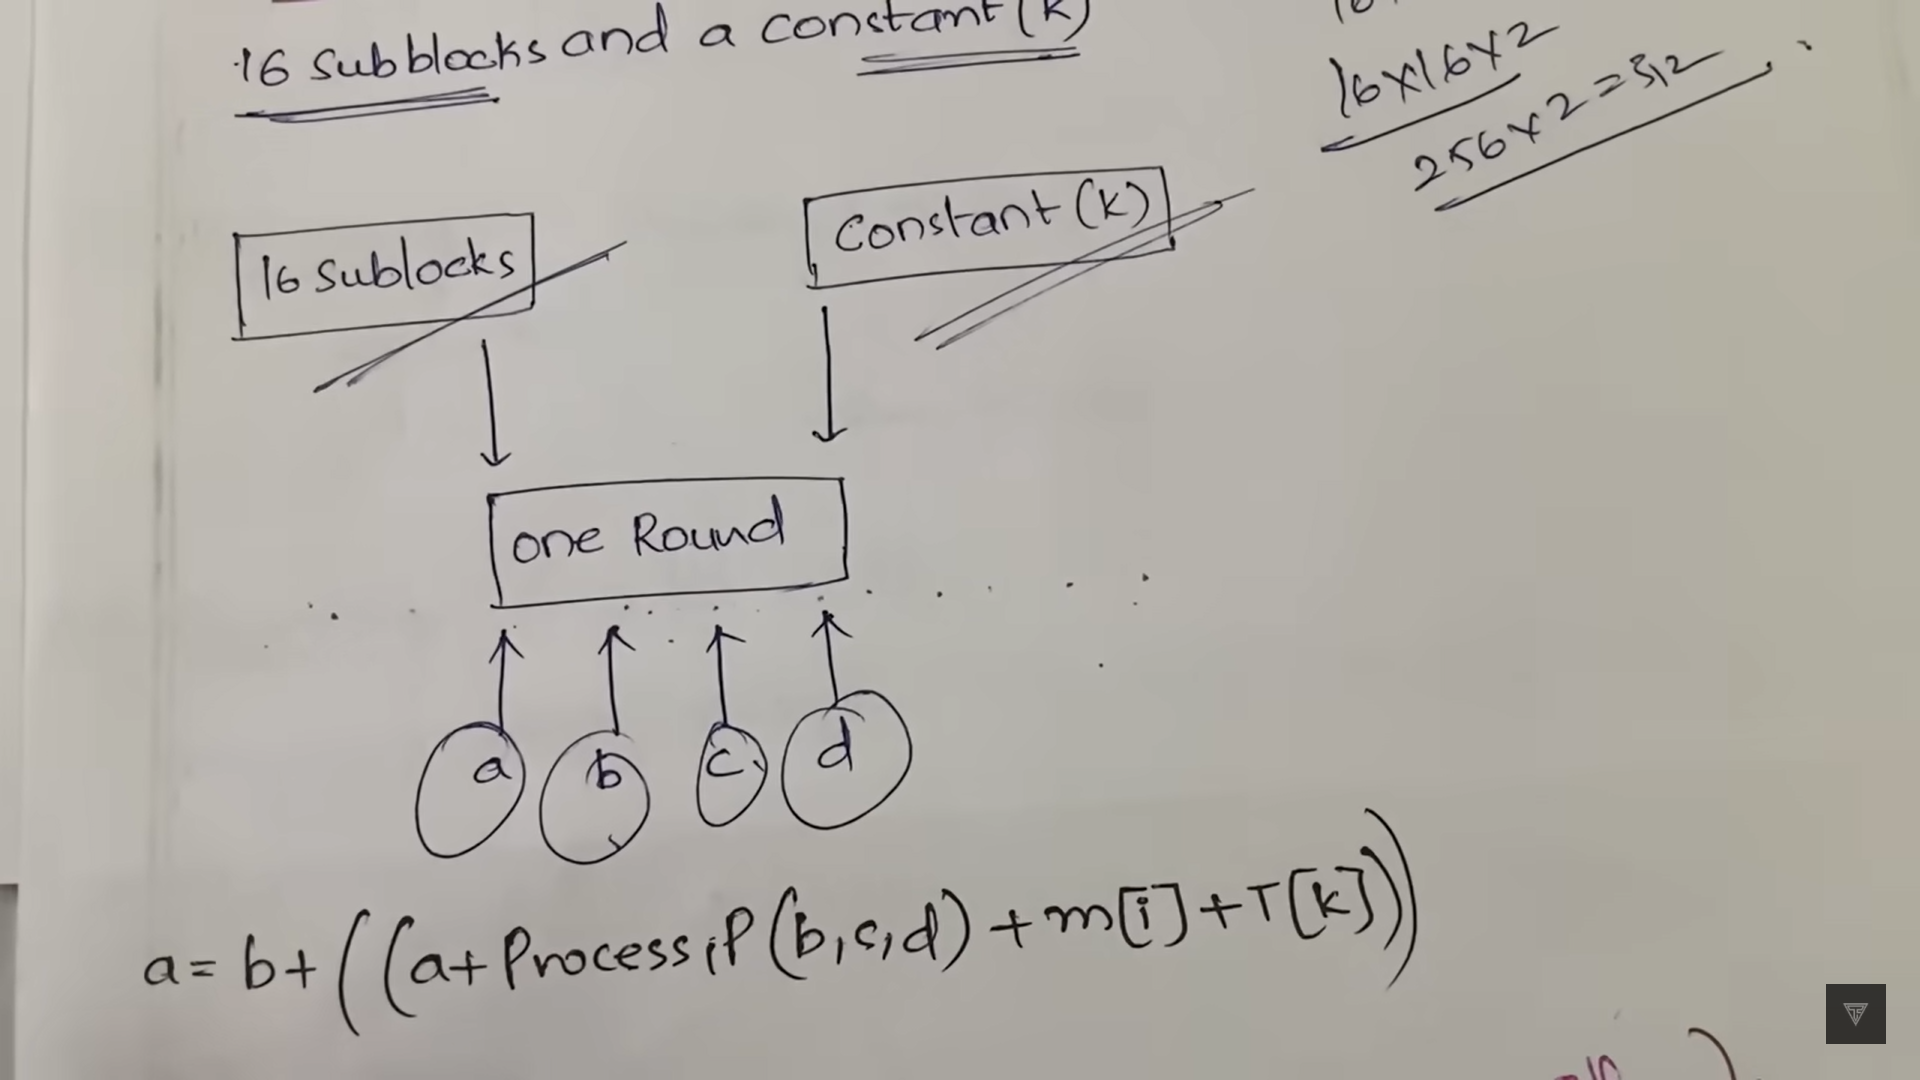 16 Subblocks and a constant (k)
16×16×2
256×2=512
16 Sublocks
Constant (k)
one Round
a b c d
a = b + ((a + Process P (b, c, d) + m[i] + T[k]))